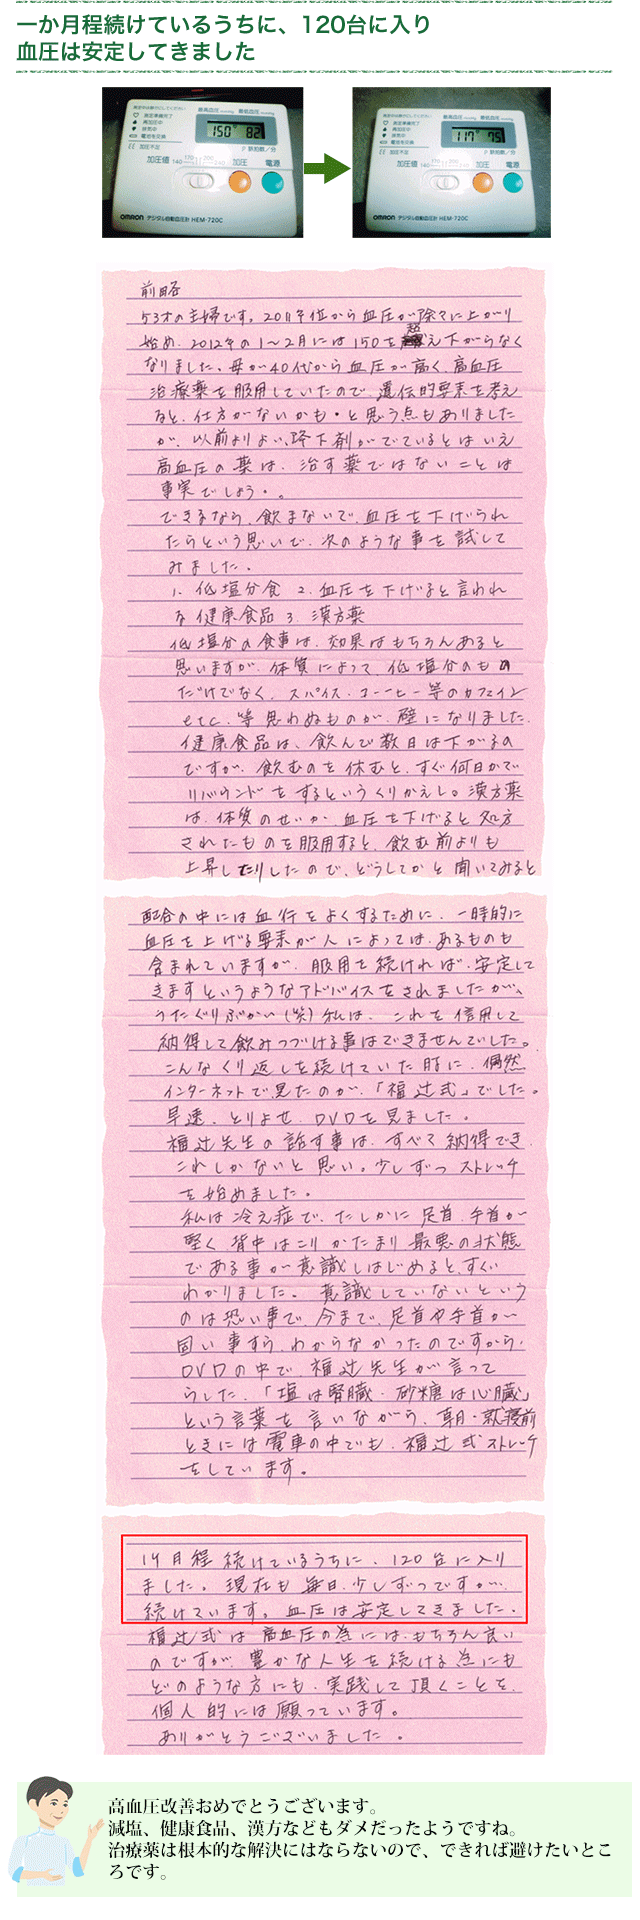 一か月程続けているうちに、120台に入り
血圧は安定してきました
最高血圧mmHg 最低血圧mmHg
測定準備完了
再加圧中
排気中
電池を交換
加圧不足
150 82
脈拍数/分
加圧値 加圧 電源
140 170 200 240
OMRON デジタル自動血圧計 HEM-720C
最高血圧mmHg 最低血圧mmHg
測定準備完了
再加圧中
排気中
電池を交換
加圧不足
117 75
脈拍数/分
加圧値 加圧 電源
140 170 200 240
OMRON デジタル自動血圧計 HEM-720C
前略
53才の主婦です。2011年位から血圧が徐々に上がり
始め、2012年の1〜2月には150を超え下がらなく
なりました。母が40代から血圧が高く、高血圧
治療薬を服用していたので、遺伝的要素を考え
ると、仕方がないかも・と思う点もありました
が、以前よりよい、降下剤がでているとはいえ
高血圧の薬は、治す薬ではないことは
事実でしょう・。
できるなら、飲まないで、血圧を下げられ
たらという思いで、次のような事を試して
みました。
1. 低塩分食 2. 血圧を下げると言われ
る健康食品 3. 漢方薬
低塩分の食事は、効果はもちろんあると
思いますが、体質によって、低塩分のもの
だけでなく、スパイス・コーヒー等のカフェイン
etc. 等思わぬものが、壁になりました。
健康食品は、飲んで数日は下がるの
ですが、飲むのを休むと、すぐ何日かで
リバウンドをするというくりかえし。漢方薬
は、体質のせいか、血圧を下げると処方
されたものを服用すると、飲む前よりも
上昇したりしたので、どうしてかと聞いてみると
配合の中には血行をよくするために、一時的に
血圧を上げる要素が人によっては、あるものも
含まれていますが、服用を続ければ、安定して
きますというようなアドバイスをされましたが、
うたぐりぶかい(笑)私は、これを信用して
納得して飲みつづける事はできませんでした。
こんなくり返しを続けていた時に、偶然
インターネットで見たのが、「福辻式」でした。
早速、とりよせ、DVDを見ました。
福辻先生の話す事は、すべて納得でき、
これしかないと思い。少しずつストレッチ
を始めました。
私は冷え症で、たしかに足首、手首が
堅く、背中はこりかたまり最悪の状態
である事が意識しはじめると、すぐに
わかりました。意識していないという
のは恐い事で、今まで、足首や手首が
固い事すら、わからなかったのですから、
DVDの中で、福辻先生が言って
らした、「塩は腎臓・砂糖は心臓」
という言葉を言いながら、朝・就寝前
ときには電車の中でも、福辻式ストレッチ
をしています。
1ヶ月程続けているうちに、120台に入り
ました。現在も毎日、少しずつですが、
続けています。血圧は安定してきました。
福辻式は高血圧の為には、もちろん良い
のですが、豊かな人生を続ける為にも
どのような方にも、実践して頂くことを、
個人的には願っています。
ありがとうございました。
高血圧改善おめでとうございます。
減塩、健康食品、漢方などもダメだったようですね。
治療薬は根本的な解決にはならないので、できれば避けたいとこ
ろです。